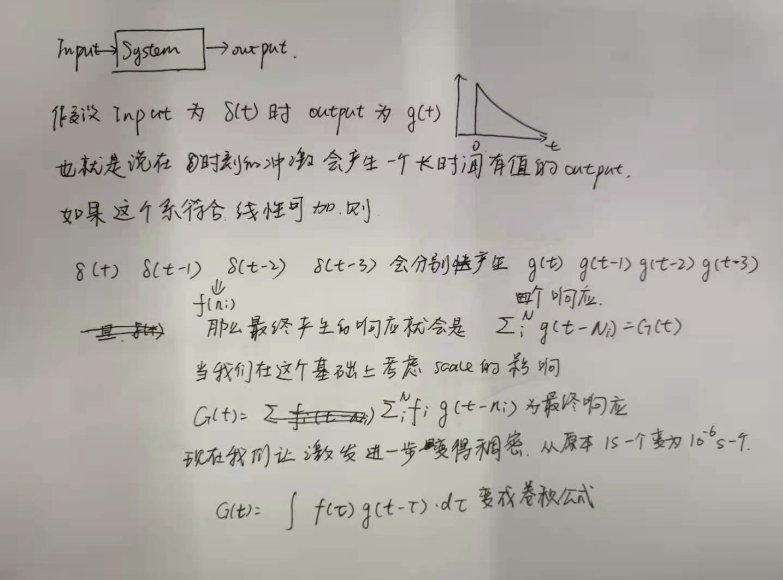 Input→ System →output.
假设 Input 为 δ(t) 时 output 为 g(t)
0 t
也就是说在 0时刻的冲激会产生一个长时间有值的output.
如果这个系符合线性可加.则
δ(t) δ(t-1) δ(t-2) δ(t-3) 会分别产生 g(t) g(t-1) g(t-2) g(t-3)
f(ni) 四个响应.
那么最终产生的响应就会是 Σᵢᴺ g(t-Ni)=G(t)
当我们在这个基础上考虑 scale的影响
G(t)= Σᵢᴺ fi g(t-ni) 为最终响应
现在我们让激发进一步变得稠密. 从原本 1s一个变为 10⁻⁶s一个.
G(t)= ∫ f(τ) g(t-τ)·dτ 变成卷积公式